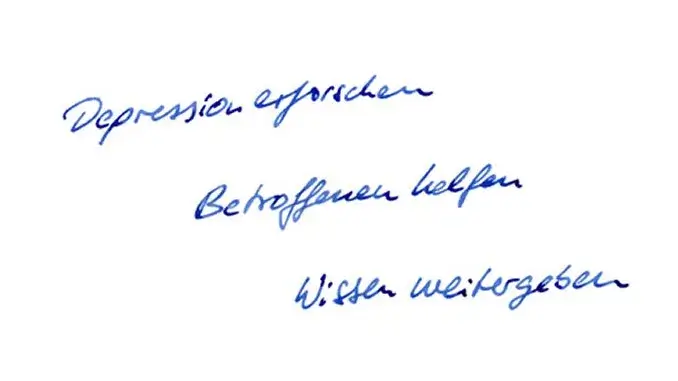 Depression erforschen
Betroffenen helfen
Wissen weitergeben